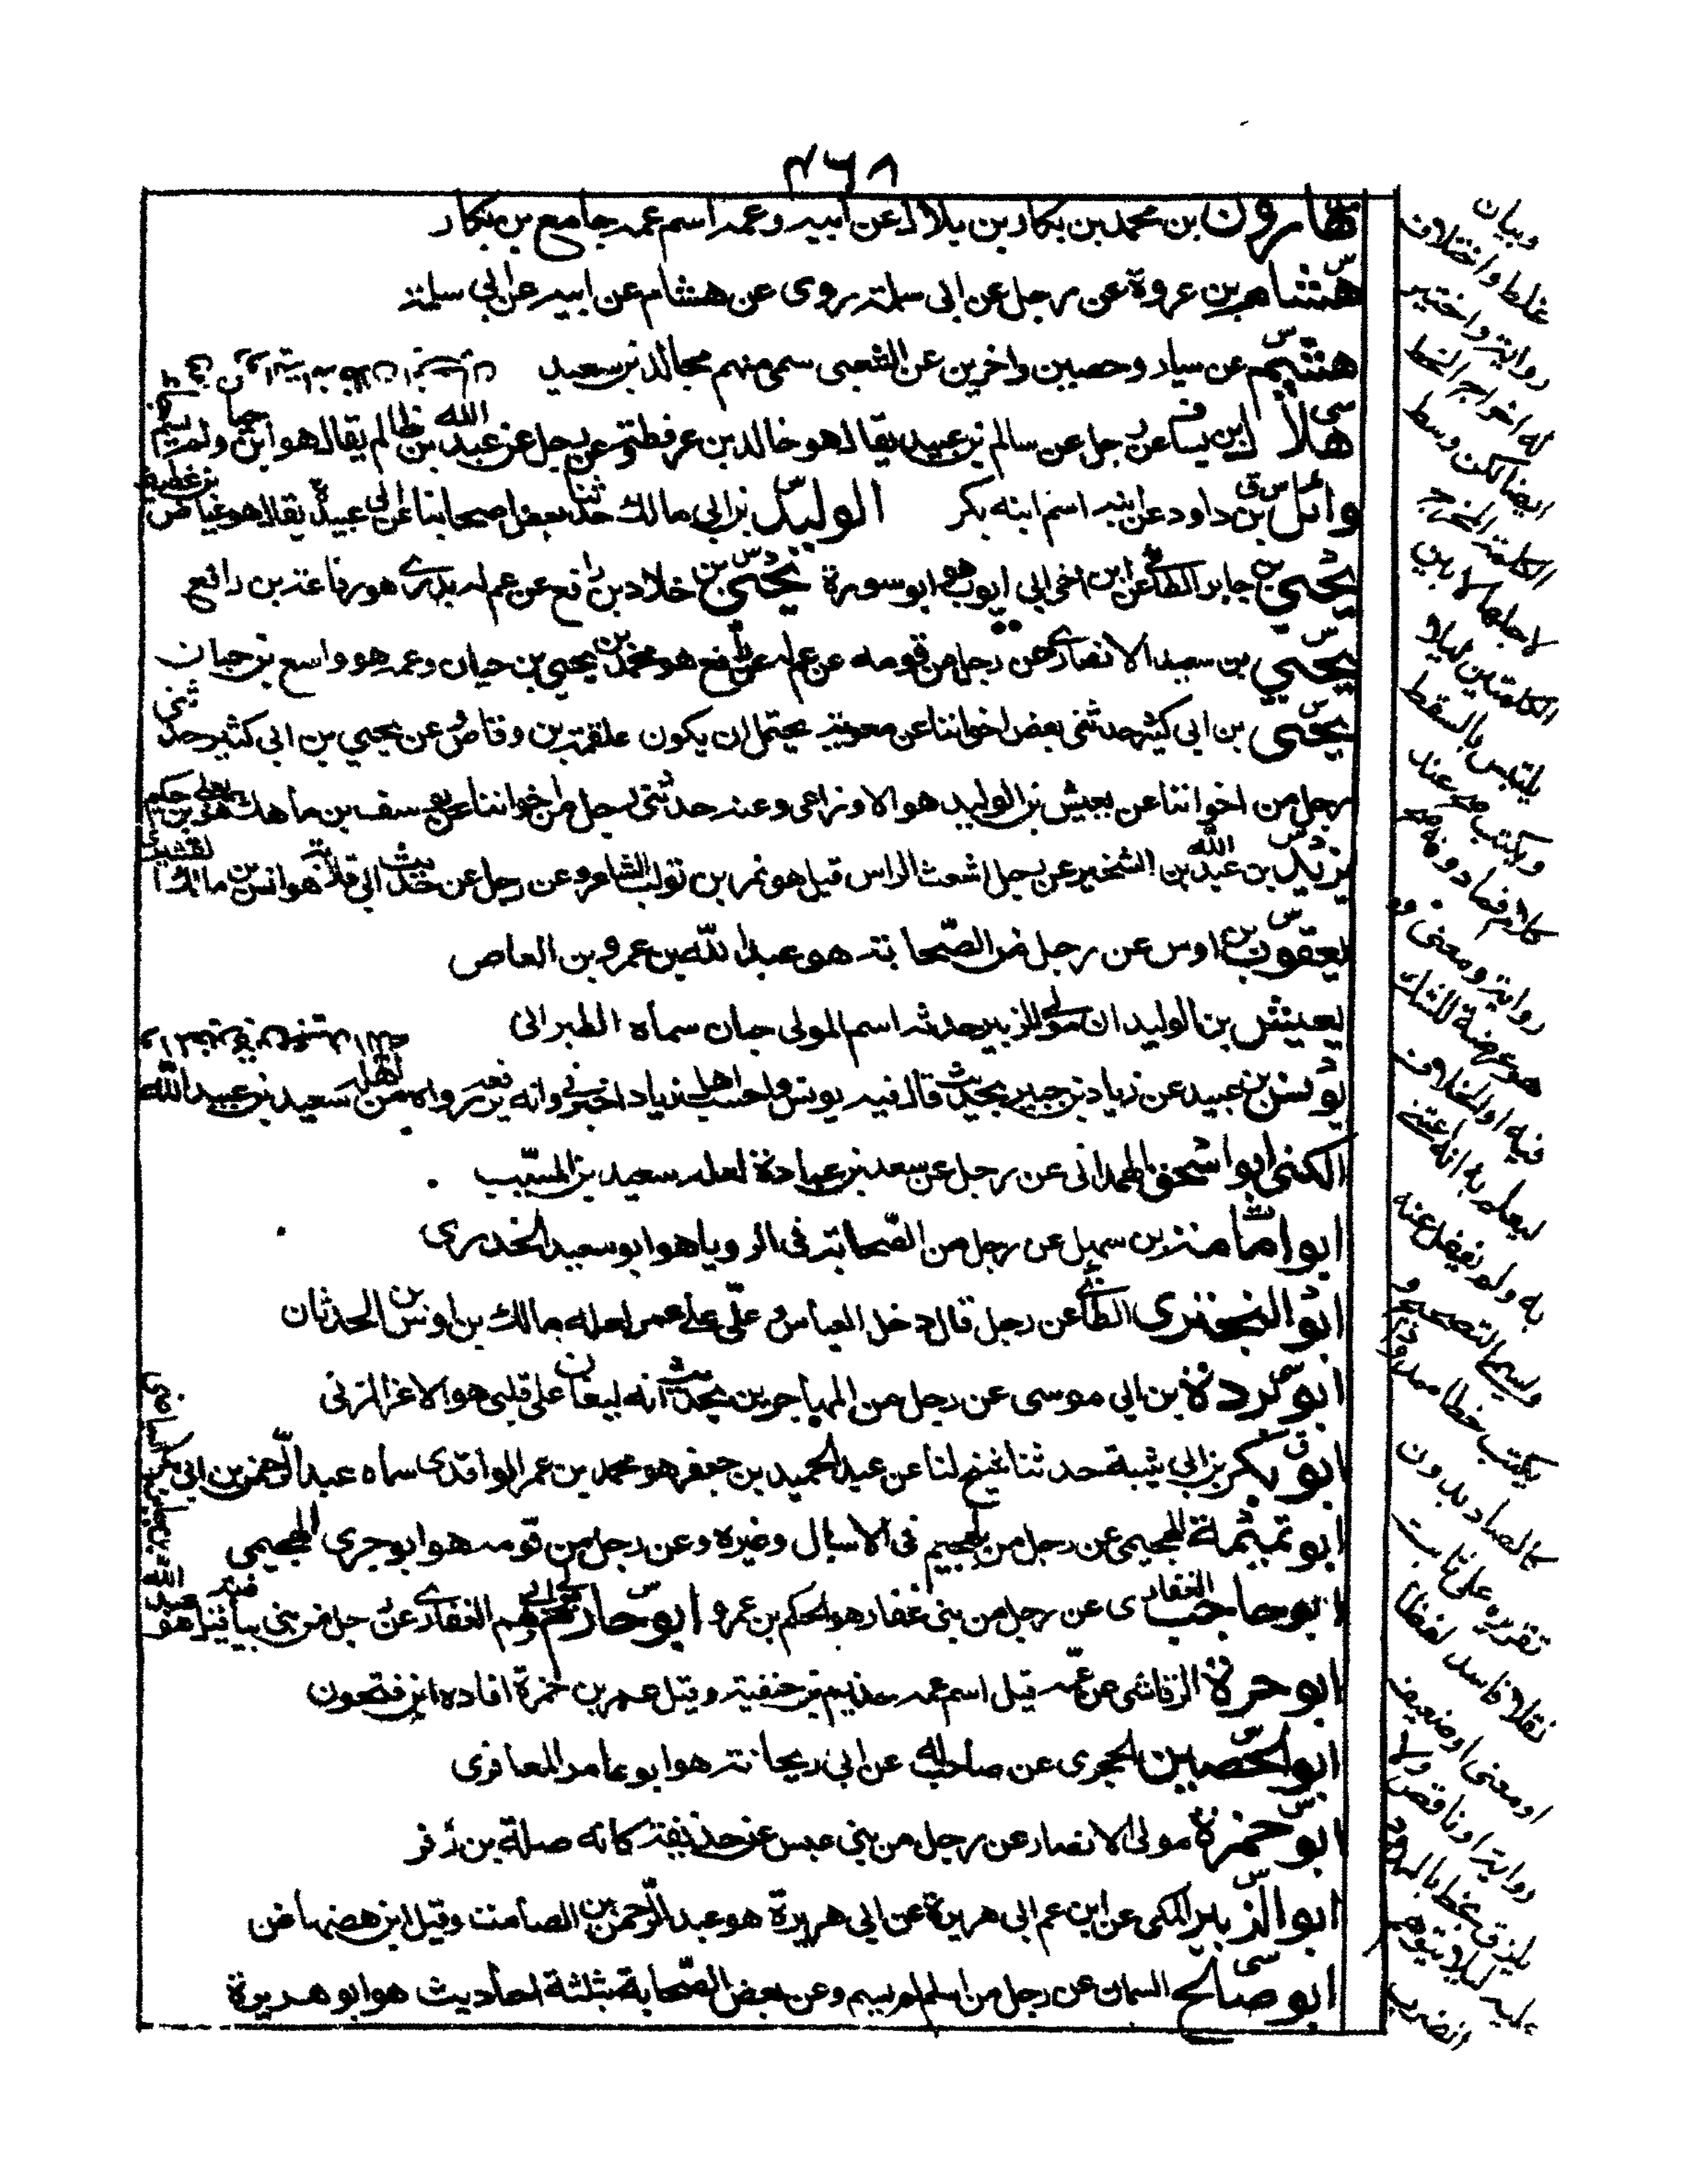 ٤٦٨
هارون بن محمد بن بكار بن بلال عن ابيه وعمه اسم عمه جامع بن بكار
هشام بن عروة عن رجل عن ابى سلمة روى عن هشام عن ابيه عن ابي سلمة
هشيم عن سيار وحصين واخرين عن الشعبى سمى منهم مجالد بن سعيد
هلال بن يساف عن رجل عن سالم بن عبيد يقال هو خالد بن عرفطة وعن رجل عن عبد الله بن ظالم يقال هو ابن حيان
وائل بن داود عن ابنه اسم ابنه بكر الوليد بن ابي مالك حدثنا بعض اصحابنا عن ابي عبيدة يقال هو عياض بن غطيف
يحيى بن جابر الطائى عن ابن اخى ابي ايوب هو ابو سورة يحيى بن خلاد بن رافع عن عم له بدرى هو رفاعة بن رافع
يحيى بن سعيد الانصارى عن رجل من قومه عن عم له عن رافع هو محمد بن يحيى بن حيان وعمه هو واسع بن حبان
يحيى بن ابي كثير حدثنى بعض اخواننا عن معوية يحتمل ان يكون علقمة بن وقاص وعن يحيى بن ابى كثير حدثنى
رجل من اخواننا عن يعيش بن الوليد هو الاوزاعى وعنه حدثنى رجل من اخواننا عن يوسف بن ماهك هو يعلى بن حكيم
يزيد بن عبد الله بن الشخير عن رجل اشعث الراس قيل هو نمر بن تولب الشاعر وعن رجل عن حديث ابي قلابة هو انس بن مالك القشيرى
يعقوب بن اوس عن رجل من الصحابة هو عبد الله بن عمرو بن العاص
يعيش بن الوليد ان مولى الزبير حدثه اسم المولى حبان سماه الطبرانى
يونس بن عبيد عن زياد بن جبير بحديث قال فيه يونس واحسب اهل زياد اخبرونى وانه من رواه سعيد بن عبيد الله
الكنى ابو اسحق الهمدانى عن رجل عن سعد بن عبادة لعله سعيد بن المسيب
ابو امامة بن سهل عن رجل من الصحابة فى الرويا هو ابو سعيد الخدرى
ابو البخترى الطائى عن رجل قال دخل العباس وعلى على عمر لعله مالك بن اوس بن الحدثان
ابو بردة بن ابي موسى عن رجل من المهاجرين بحديث انه ليغان على قلبى هو الاغر المزنى
ابو بكر بن ابي شيبة حدثنا شيخ لنا عن عبد الحميد بن جعفر هو محمد بن عمر الواقدى سماه عبد الرحمن بن ابي
ابو تميمة الهجيمى عن رجل من بلهجيم فى الاسبال وغيره وعن رجل من قومه هو ابو جرى الهجيمى
ابو حاجب الغفارى عن رجل من بنى غفار هو الحكم بن عمرو ابو حازم مولى ابي رهم الغفارى عن رجل من بنى بياضة قيل هو عبد الله
ابو حرة الرقاشى عن عمه قيل اسم عمه حذيم بن حنيفة وقيل عمر بن حمزة افاده ابن فتحون
ابو الحصين الحجرى عن صاحب له عن ابي ريحانة هو ابو عامر المعافرى
ابو حمزة مولى الانصار عن رجل من بنى عبس عن حذيفة كانه صلة بن زفر
ابو الزبير المكى عن ابن عم ابى هريرة عن ابي هريرة هو عبد الرحمن بن الصامت وقيل ابن هضهاض
ابو صالح السمان عن رجل من اسلم لم يسم وعن بعض الصحابة بثلثة احاديث هو ابو هريرة
وبيان
غلط واختلاف
رواية واختير
له اخراج الخط
ايضا لكن وسط
الكلمة المخرج
لاجلها لا بين
الكلمتين ليلا
يلتبس بالسقط
ويكتب صح عند
كلام فساده
رواية ومعنى وهو
هو عرضة للشك
فيه او الخلاف
ليعلم به انه اعتنى
به ولم يغفل عنه
وليسم التصحيح و
يكتب خطا ممدود
كالصاد بدون
تقريره على ثابت
نقلا فاسد لفظا
او معنى او ضعيف
رواية او ناقص ولا
يلزق خط بالممدود
عليه ليلا يتوهم
الضرب